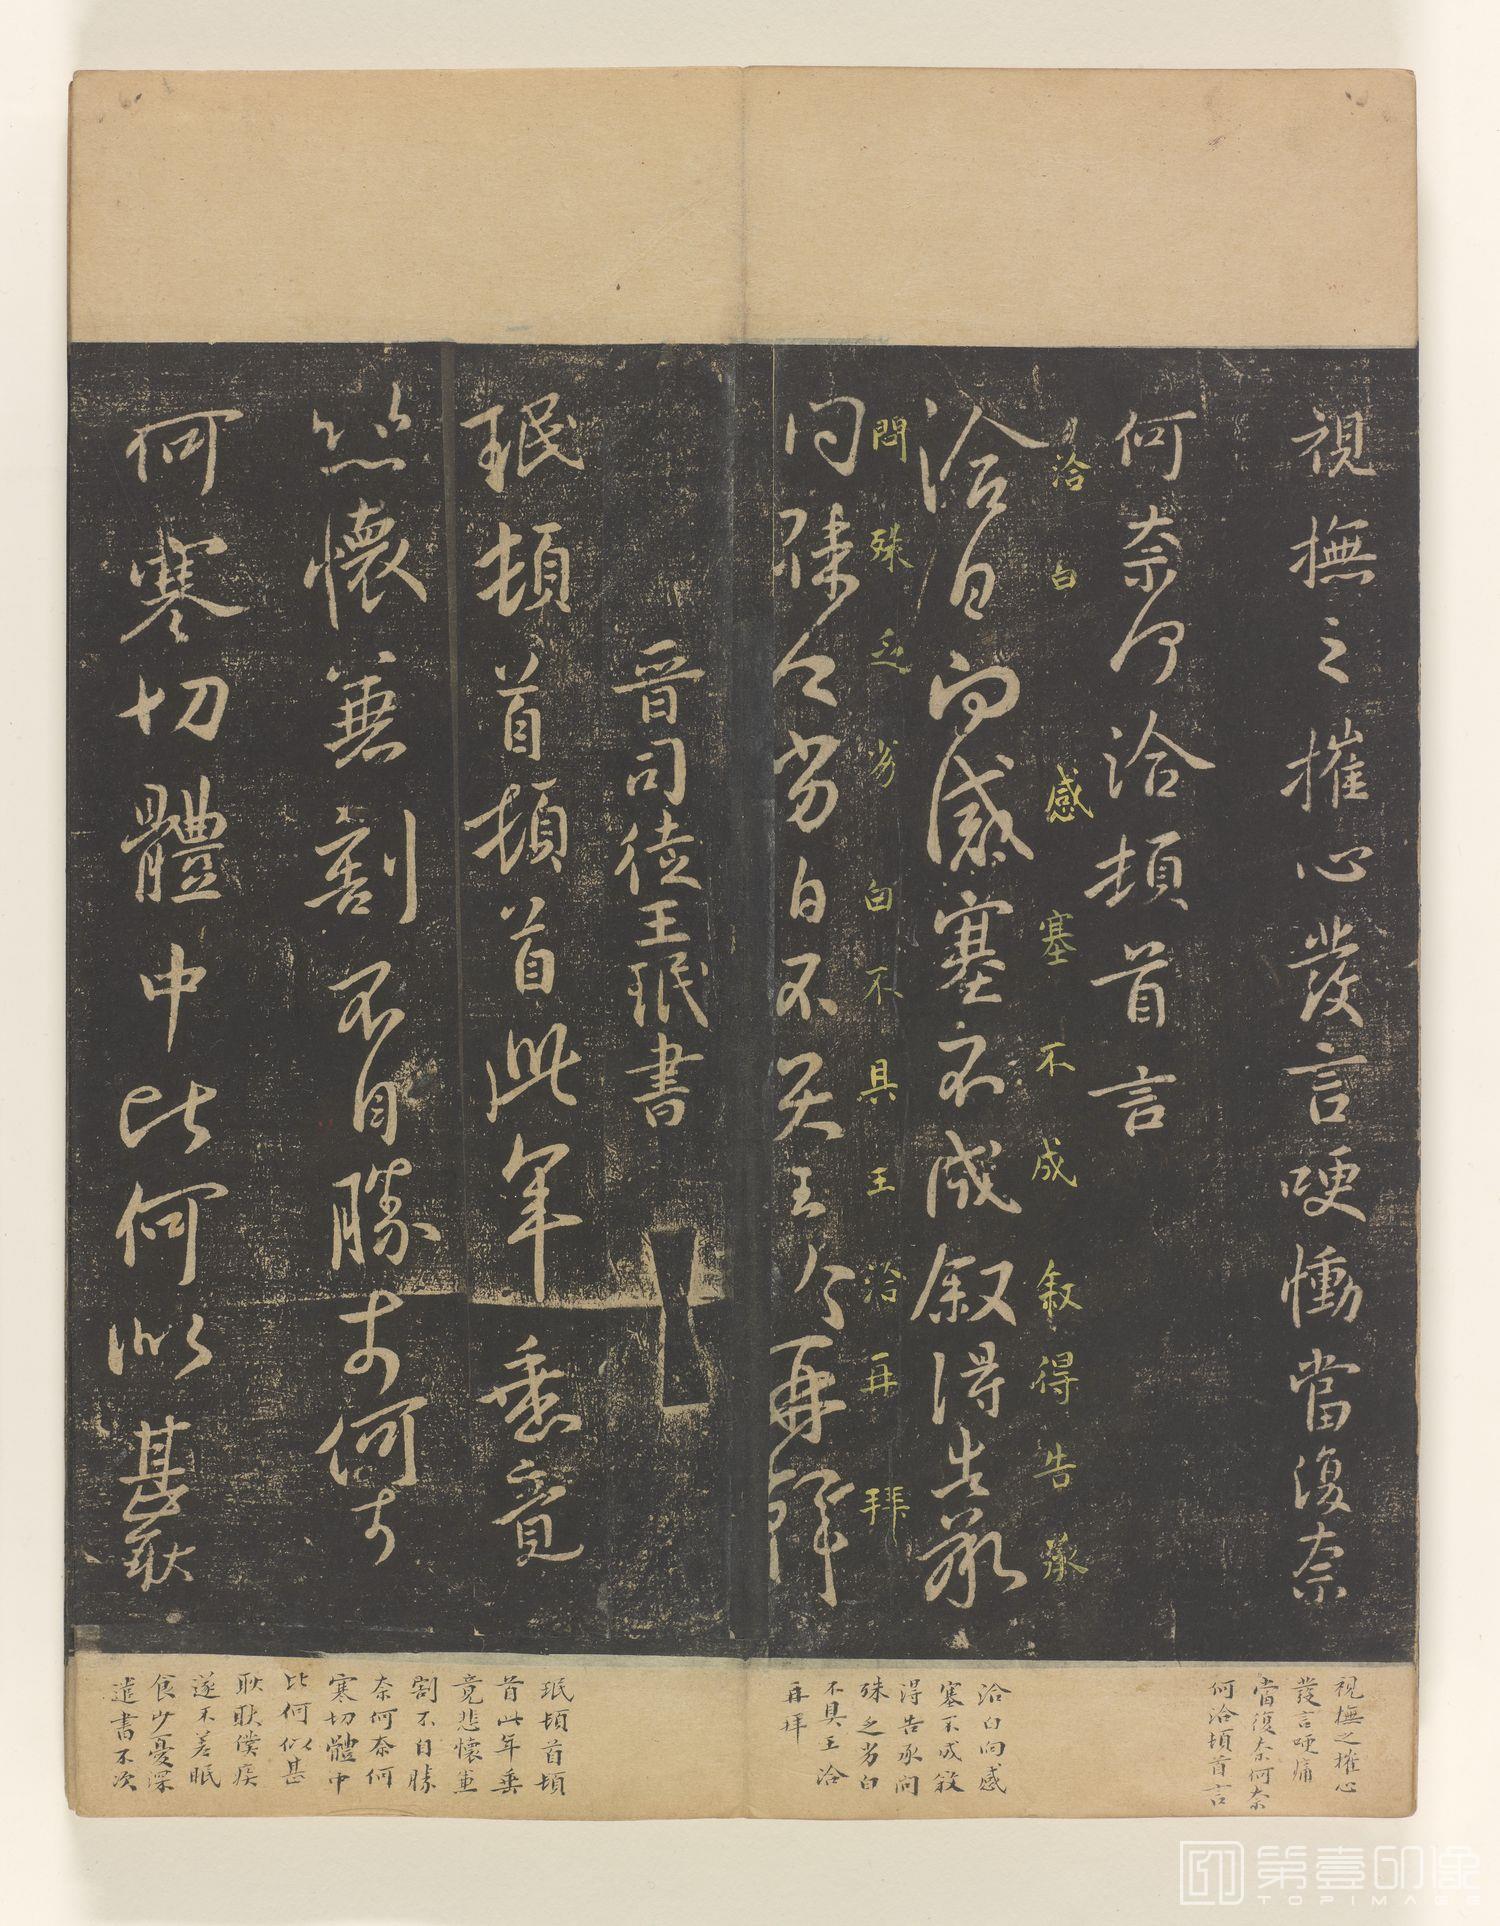 視撫之摧心發言哽慟當復奈
何奈何洽頓首言
洽白
感塞不成敘得告承
洽白向感塞不成敘得告承
問殊乏劣白不具王洽再拜
問殊乏劣白不具王洽再拜
晉司徒王珉書
珉頓首頓首此年垂竟
悲懷兼割不自勝奈何奈
何寒切體中比何似甚耿
視撫之摧心
發言哽痛
當復奈何奈
何洽頓首言
洽白向感
塞不成敘
得告承問
殊乏劣白
不具王洽
再拜
珉頓首頓
首此年垂
竟悲懷兼
割不自勝
奈何奈何
寒切體中
比何似甚
耿耿僕疾
遂不差眠
食少憂深
遣書不次
第壹印像
TOPIMAGE